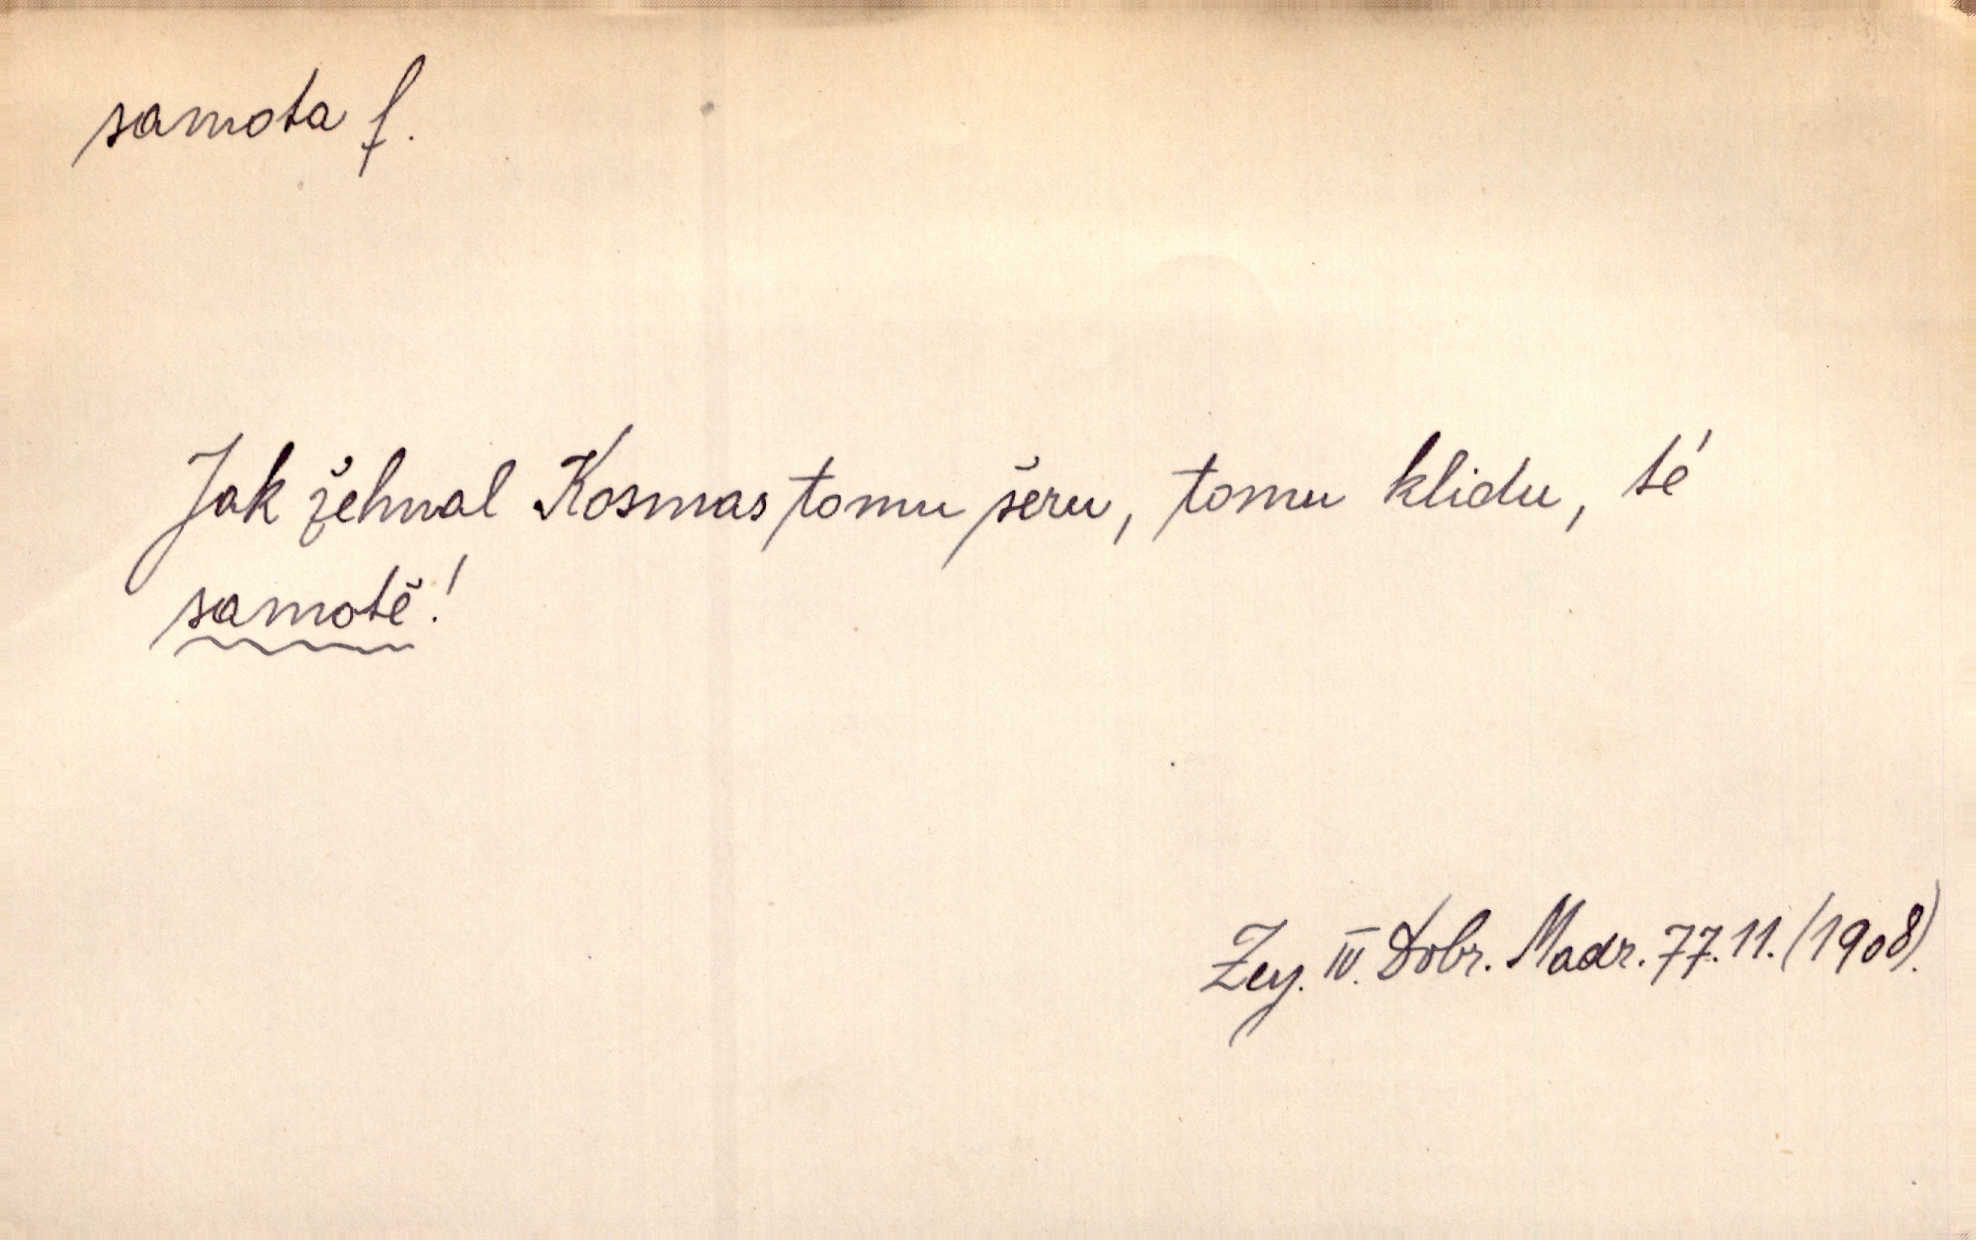 samota f.
Jak žehnal Kosmas tomu šeru, tomu klidu, té
samotě!
Zey. IV. Dobr. Madr. 77.11. (1908).